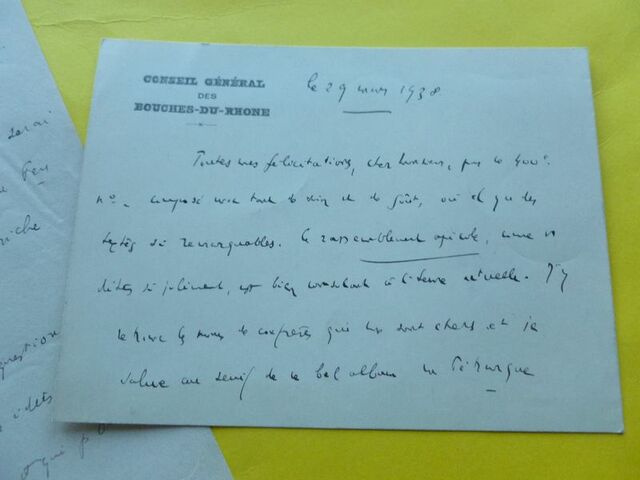 CONSEIL GÉNÉRAL
DES
BOUCHES-DU-RHONE
le 29 mars 1938
Toutes mes félicitations, cher Monsieur, pour ce 400e
n° composé avec tant de soin et de goût, où il y a des
textes si remarquables. Ce rassemblement, comme vs
dites si joliment, est bien à l'heure actuelle. J'y
retrouve les noms de confrères qui me sont chers et je
salue au seuil de ce bel album
serai
riche
question